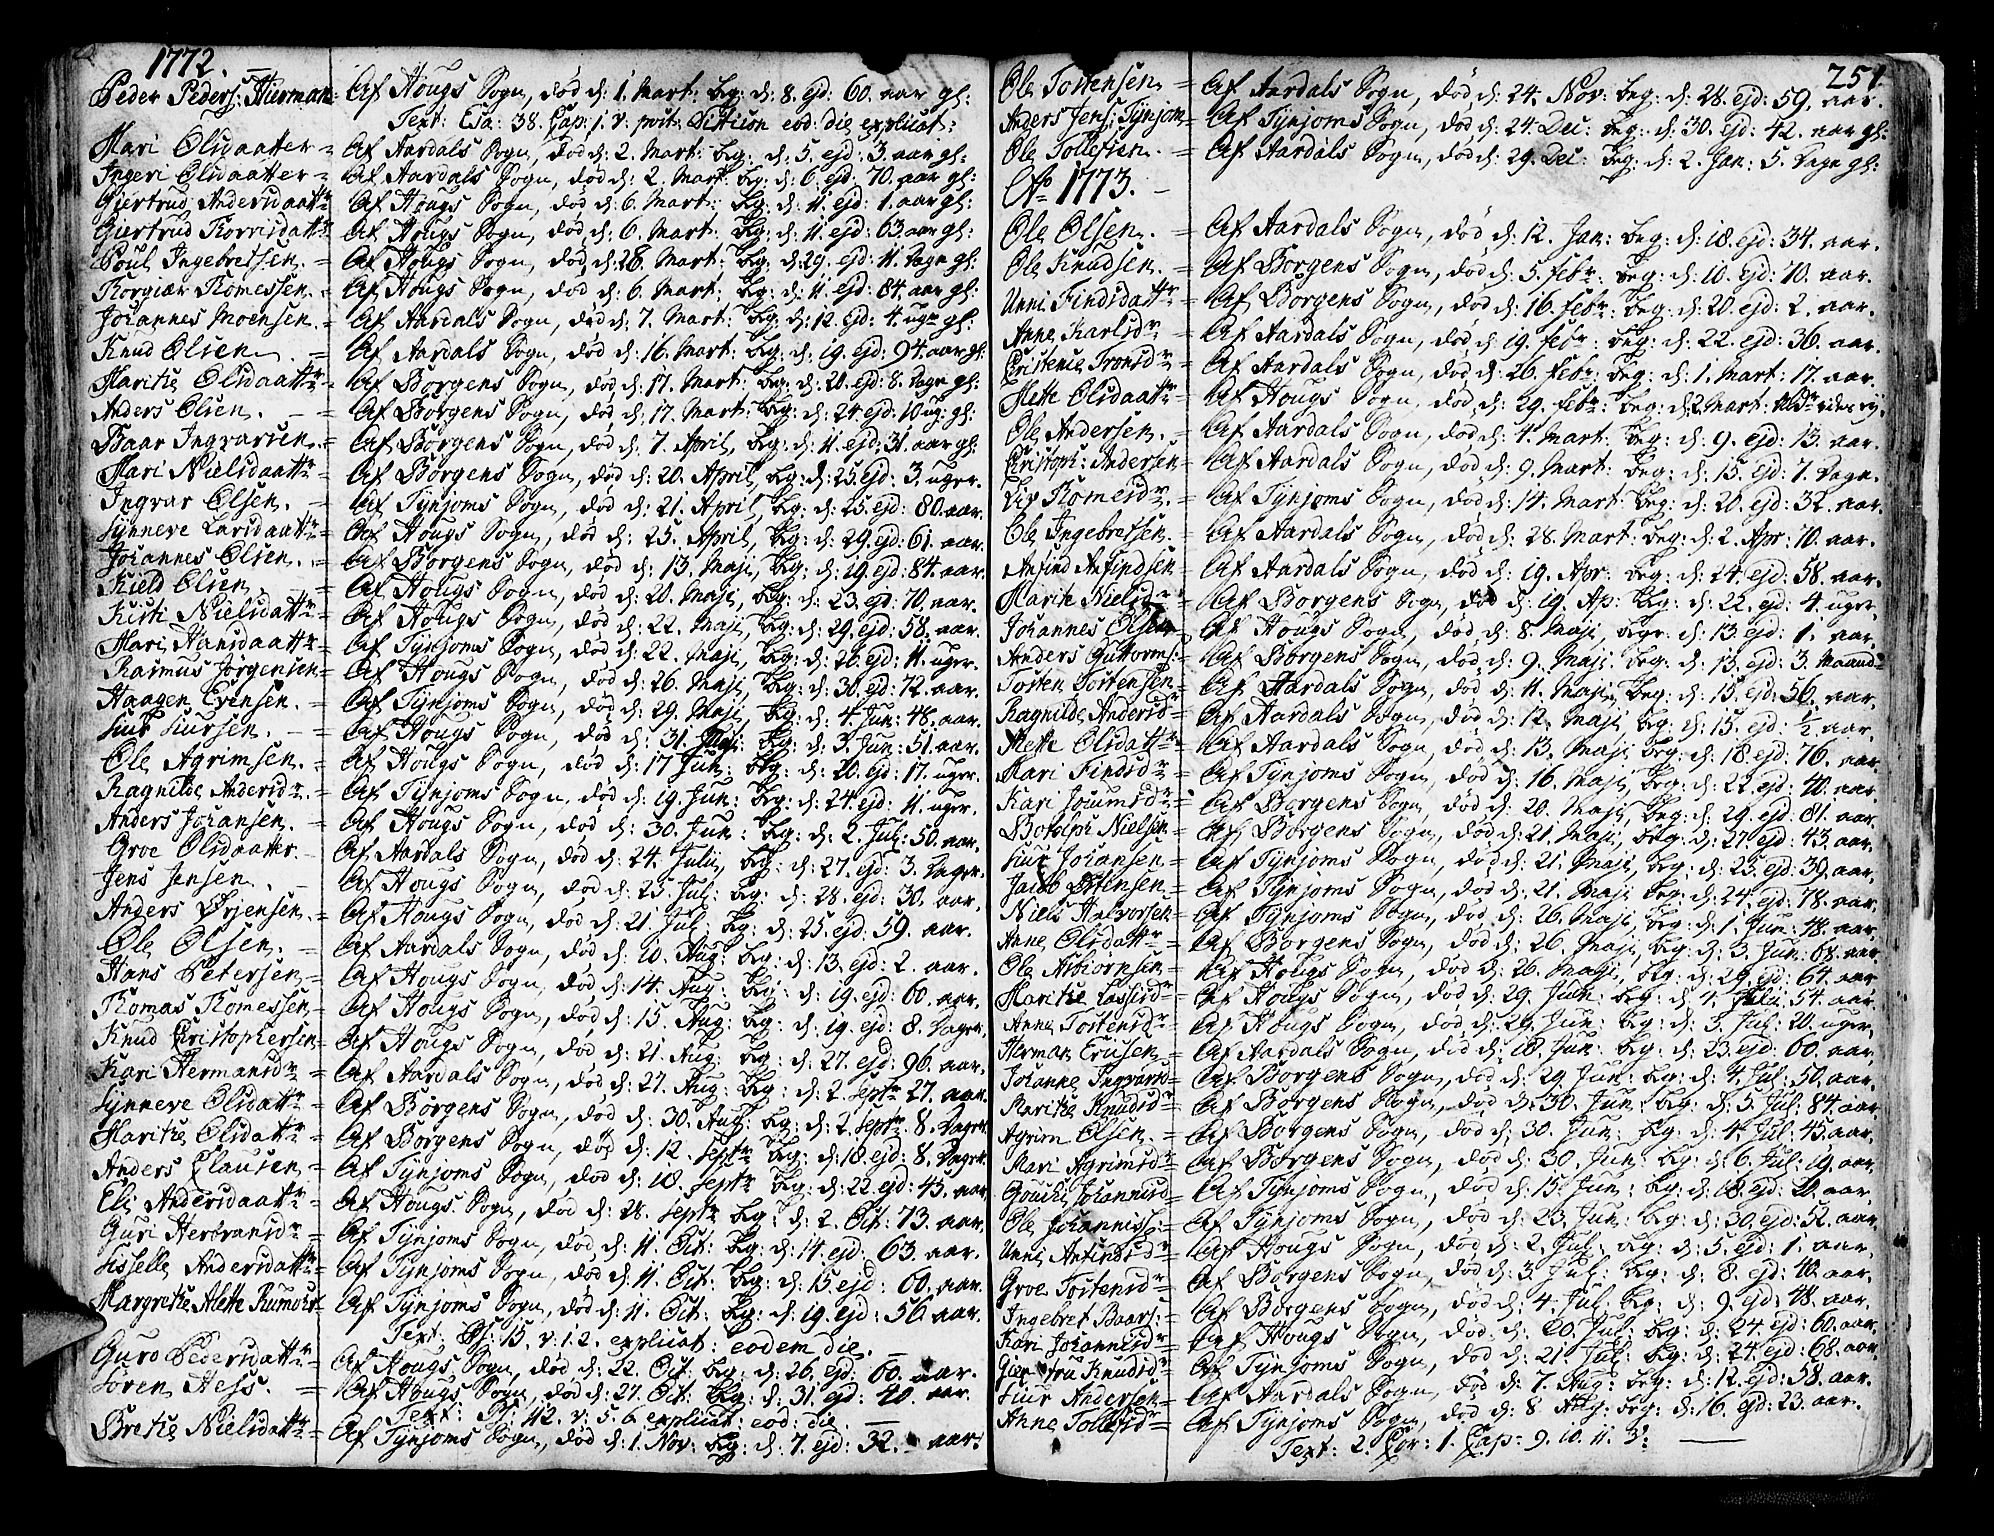 1772.
Peder Peders: Hierman = Af Hougs Sogn, død d: 1. Mart: beg: d: 8. ejd: 60. aar gl:
Text: Esa: 38. Cap: 1. v: eod: die explicat:
Mari Olsdaatter = Af Aardals Sogn, død d: 2. Mart: beg: d: 5. ejd: 3. aar gl:
Ingeri Olsdaatter = Af Aardals Sogn, død d: 2. Mart: beg: d: 6. ejd: 70. aar gl:
Giertrud Andersdaatr = Af Hougs Sogn, død d: 6. Mart: beg: d: 11. ejd: 1. aar gl:
Giertrud = Af Hougs Sogn, død d: 6. Mart: beg: d: 11. ejd: 63 aar gl:
Poul Ingebretsen. = Af Hougs Sogn, død d: 26. Mart: beg: d: 29. ejd: 11. Dagn gl:
Torgiær Tomessen. = Af Hougs Sogn, død d: 6. Mart: beg: d: 11. ejd: 84. aar gl:
Johannes Moensen. = Af Aardals Sogn, død d: 7. Mart: beg: d: 12. ejd: 4. ugr gl:
Knud Olsen. = Af Aardals Sogn, død d: 16. Mart: beg: d: 19. ejd: 94. aar gl:
Marithe Olsdaattr = Af Borgens Sogn, død d: 17. Mart: beg: d: 20. ejd: 8. Dagn gl:
Anders Olsen. = Af Borgens Sogn, død d: 17. Mart: beg: d: 24 ejd: 10 ug: gl:
Baar Ingvarsen. = Af Borgens Sogn, død d: 7. April, beg: d: 11. ejd: 31. aar gl:
Mari Nielsdaattr = Af Borgens Sogn, død d: 20. April, beg: d: 25. ejd: 3. uger.
Ingvar Olsen. = Af Tynjoms Sogn, død d: 21. April, beg: d: 25. ejd: 80. aar.
Synneve Larsdaattr = Af Hougs Sogn, død d: 25. April, beg: d: 29. ejd: 61. aar.
Johannes Olsen. = Af Borgens Sogn, død d: 13. Maji, beg: d: 19. ejd: 84. aar.
Kield Olsen, = Af Hougs Sogn, død d: 20. Maji, beg: d: 23. ejd: 70. aar.
Kirsti Nielsdattr = Af Hougs Sogn, død d: 22. Maji, beg: d: 29. ejd: 58. aar.
Mari Hansdaattr = Af Tynjoms Sogn, død d: 22. Maji, beg: d: 26. ejd: 11. uger.
Rasmus Jørgensen = Af Hougs Sogn, død d: 26. Maji, beg: d: 30. ejd: 72. aar.
Haagen Evensen. = Af Tynjoms Sogn, død d: 29. Maji, beg: d: 4. Jun: 48. aar.
Siur Siursen. = Af Hougs Sogn, død d: 31. Maji: beg: d: 3. Jun: 51. aar.
Ole Agrimsen. = Af Hougs Sogn, død d: 17 Jun: beg: d: 20. ejd: 17. uger.
Ragnilde Andersdr. = Af Tynjoms Sogn, død d: 19. Jun: beg: d: 24. ejd: 11. uger.
Anders Johansen. = Af Hougs Sogn, død d: 30. Jun: beg: d: 2. Jul: 50. aar.
Groe Olsdaatter Af Aardals Sogn, død d: 24. Julii, beg: d: 27. ejd: 3. Dager.
Jens Jensen. = Af Hougs Sogn, død d: 23. Jul: beg: d: 28. ejd: 30. aar.
Anders Ørjensen. = Af Hougs Sogn, død d: 21. Jul: beg: d: 25. ejd: 59. aar.
Ole Olsen. = Af Aardals Sogn, død d: 10. Aug: beg: d: 13. ejd: 2. aar.
Hans Petersen = Af Hougs Sogn, død d: 14. Aug: beg: d: 19. ejd: 60. aar.
Tomas Tomessen = Af Hougs Sogn, død d: 15. Aug: beg: d: 19. ejd: 8. Dager.
Knud Christophersen = Af Hougs Sogn, død d: 21. Aug: beg: d: 27. ejd: 96. aar.
Kari Hermansdr = Af Aardals Sogn, død d: 27. Aug: beg: d: 2. Septr 27. aar.
Synneve Olsdattr = Af Borgens Sogn, død d: 30. Aug: beg: d: 2. Septr: 8. Dager.
Marithe Olsdattr = Af Borgens Sogn, død d: 12. Septr beg: d: 18. ejd: 8. Dager.
Anders Clausen = Af Tynjoms Sogn, død d: 18. Septr beg: d: 22. ejd: 45. aar.
Eli Andersdaattr = Af Hougs Sogn, død d: 28. Septr beg: d: 2. Oct: 73. aar.
Guri Herbransdr = Af Tynjoms Sogn, død d: 11. Oct: beg: d: 14. ejd: 63. aar.
Sisselle Andersdattr = Af Tynjoms Sogn, død d: 11. Oct: beg: d: 15 ejd: 60. aar.
Margrethe Alette Rumohr = Af Tynjoms Sogn, død d: 11. Oct: beg: d: 19. ejd: 56. aar.
Text: Ps: 15. v: 1. 2. explicat: eodem die.
Guro Pedersdattr = Af Hougs Sogn, død d: 22. Oct: beg: d: 26. ejd: 60. aar.
Søren Hess. = Af Hougs Sogn, død d: 27. Oct: beg: d: 31. ejd: 40. aar.
Text: Ps: 42. v: 5. 6. explicat: eod: die.
Brethe Nielsdattr = Af Tynjoms Sogn, død d: 1. Nov: beg: d: 7. ejd: 32. aar.
251.
Ole Tostensen. = Af Aardals Sogn, død d: 24. Nov: beg: d: 28. ejd: 59. aar.
Anders Jens: Tynjom = Af Tynjoms Sogn, død d: 24. Dec: beg: d: 30. ejd: 42. aar gl:
Ole Tollefsen. = Af Aardals Sogn, død d: 29. Dec: beg: d: 2. Jan: 5. Dage gl:
Ao. 1773. -
Ole Olsen. = Af Aardals Sogn, død d: 12. Jan: beg: d: 18. ejd: 34. aar.
Ole Knudsen. = Af Borgens Sogn, død d: 5. febr: beg: d: 10. ejd: 70. aar.
Unni Findsdattr = Af Borgens Sogn, død d: 16. febr: beg: d: 20. ejd: 2. aar.
Anne Karlsdr = Af Aardals Sogn, død d: 19. febr: beg: d: 22. ejd: 36. aar.
Christenie Tronsdr = Af Aardals Sogn, død d: 26. febr: beg: d: 1. Mart: 17. aar.
Mette Olsdaattr = Af Hougs Sogn, død d: 29. febr: beg: d: 2. Mart:
Ole Andersen. = Af Aardals Sogn, død d: 4. Mart: beg: d: 9. ejd: 13. aar.
Christoph: Andersen = Af Aardals Sogn, død d: 9. Mart: beg: d: 15. ejd: 7. Dagn.
Liv Tomesdr. = Af Tynjoms Sogn, død d: 14. Mart: beg: d: 20. ejd: 32. aar.
Ole Ingebretsen. = Af Aardals Sogn, død d: 28. Mart: beg: d: 2. Apr: 70. aar.
Anfind Anfindsen = Af Aardals Sogn, død d: 19. Apr: beg: d: 24. ejd: 58. aar.
Marite Nielsdr = Af Borgens Sogn, død d: 19. Ap: beg: d: 22. ejd: 4. uger.
Johannes Olsen = Af Hougs Sogn, død d: 8. Maji, begr: d: 13. ejd: 1. aar.
Anders Guttorms: = Af Borgens Sogn, død d: 9. Maji beg: d: 13. ejd: 3. Maaned
Tosten Tostensen = Af Aardals Sogn, død d: 11. Maji, beg: d: 15. ejd: 56. aar.
Ragnilde Andersdr = Af Aardals Sogn, død d: 12. Maji beg: d: 15. ejd: ½ aar.
Mette Olsdattr = Af Aardals Sogn, død d: 13. Maji beg: d: 18. ejd: 76. aar.
Mari Findsdr = Af Tynjoms Sogn, død d: 16. Maji, beg: d: 22. ejd: 40. aar.
Kari Jouumsdr = Af Borgens Sogn, død d: 20. Maji, beg: d: 29. ejd: 81. aar.
Botolph Nielsen = Af Borgens Sogn, død d: 21. Maji, beg: d: 27. ejd: 43. aar.
Siur Johansen = Af Tynjoms Sogn, død d: 21. Maji, beg: d: 25. ejd: 39. aar.
Jacob Østensen = Af Tynjoms Sogn, død d: 21. Maji beg: d: 24. ejd: 78. aar.
Niels Halvorsen = Af Tynjoms Sogn, død d: 26. Maji, beg: d: 1. Jun: 48. aar.
Anne Olsdattr = Af Borgens Sogn, død d: 26. Maji, beg: d: 3. Jun: 68. aar.
Ole Asbiørnsen = Af Hougs Sogn, død d: 26. Maji, beg: d: 29. ejd: 64. aar
Marithe Lassesdr = Af Hougs Sogn, død d: 29. Jun: beg: d: 4. Julii: 54. aar.
Anne Tostensdr = Af Hougs Sogn, død d: 29. Jun: beg: d: 3. Jul: 20. uger.
Herman Ericsen = Af Aardals Sogn, død d: 18. Jun: beg: d: 23. ejd: 60. aar.
Johanne Ingvarsd = Af Borgens Sogn, død d: 29. Jun: beg: d: 4. Jul: 50. aar.
Marithe Knudsdr = Af Borgens Sogn, død d: 30. Jun: beg: d: 5. Jul: 84. aar.
Agrim Olsen. = Af Borgens Sogn, død d: 30. Jun: beg: d: 4. Jul: 45. aar.
Mari Agrimsdr = Af Borgens Sogn, død d: 30. Jun: beg: d: 6. Jul: 19. aar.
Johannisd = Af Tynjoms Sogn, død d: 15. Jun: beg: d: 18. ejd: 20. aar.
Ole Johanniss: = Af Tynjoms Sogn, død d: 23. Jun: beg: d: 30. ejd: 52. aar.
Unni Anfindsdr = Af Hougs Sogn, død d: 2. Jul: beg: d: 5. ejd: 1. aar.
Groe Tostensdr = Af Borgens Sogn, død d: 3. Jul: beg: d: 8. ejd: 40. aar.
Ingebret Baars: = Af Borgens Sogn, død d: 4. Jul: beg: d: 9. ejd: 48. aar.
Kari Johannisdr = Af Hougs Sogn, død d: 20. Jul: beg: d: 24. ejd: 60. aar.
Giertru Knudsdr = Af Tynjoms Sogn, død d: 21. Jul: beg: d: 24. ejd: 68. aar.
Siur Andersen = Af Aardals Sogn, død d: 7. Aug: beg: d: 12. ejd: 58. aar.
Anne Tollefsdr = Af Tynjoms Sogn, død d: 8 Aug: beg: d: 16. ejd: 23. aar.
Text: 2. Cor: 1. Cap: 9. 10. 11. 3: